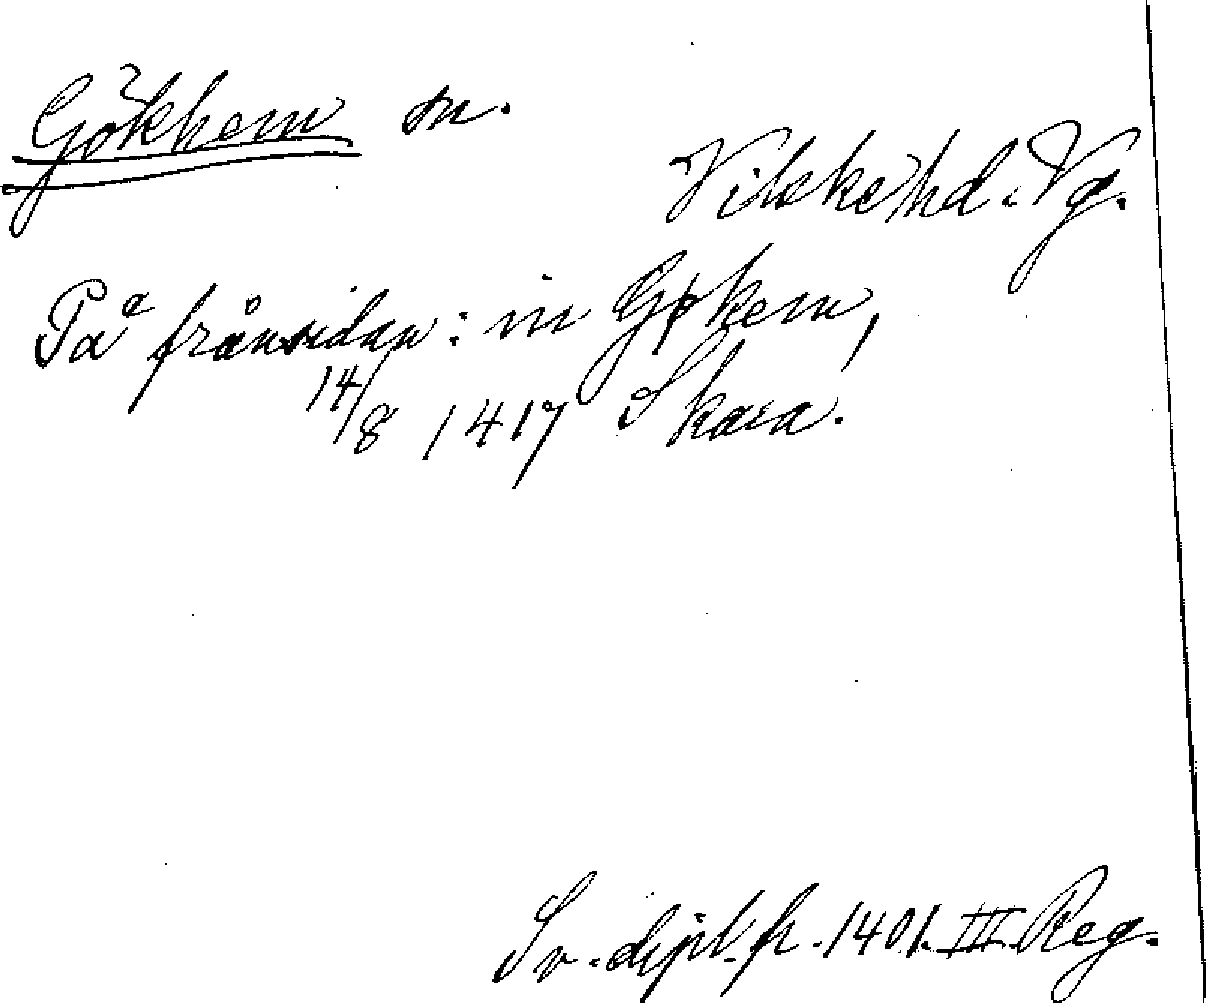 Gökhem sn.
Vilske hd. Vg.
På frånsidan: in Gøkem,
14/8 1417 Skara.
Sv. dipl. fr. 1401. III. Reg.